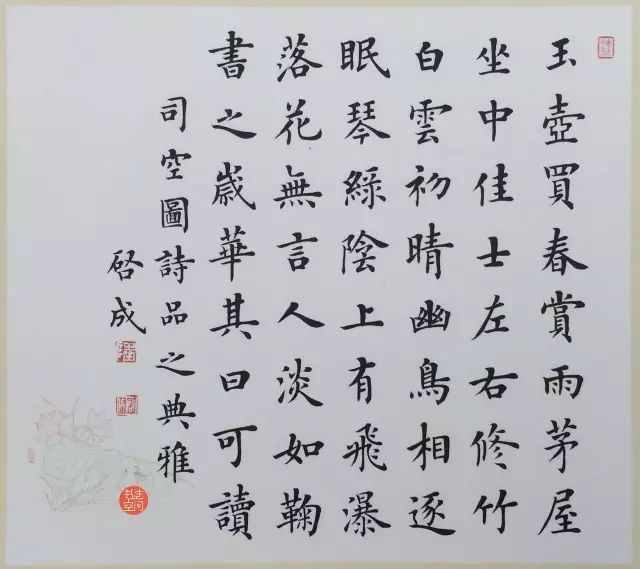 玉壺買春賞雨茅屋
坐中佳士左右修竹
白雲初晴幽鳥相逐
眠琴綠陰上有飛瀑
落花無言人淡如鞠
書之歲華其曰可讀
司空圖詩品之典雅
啓成